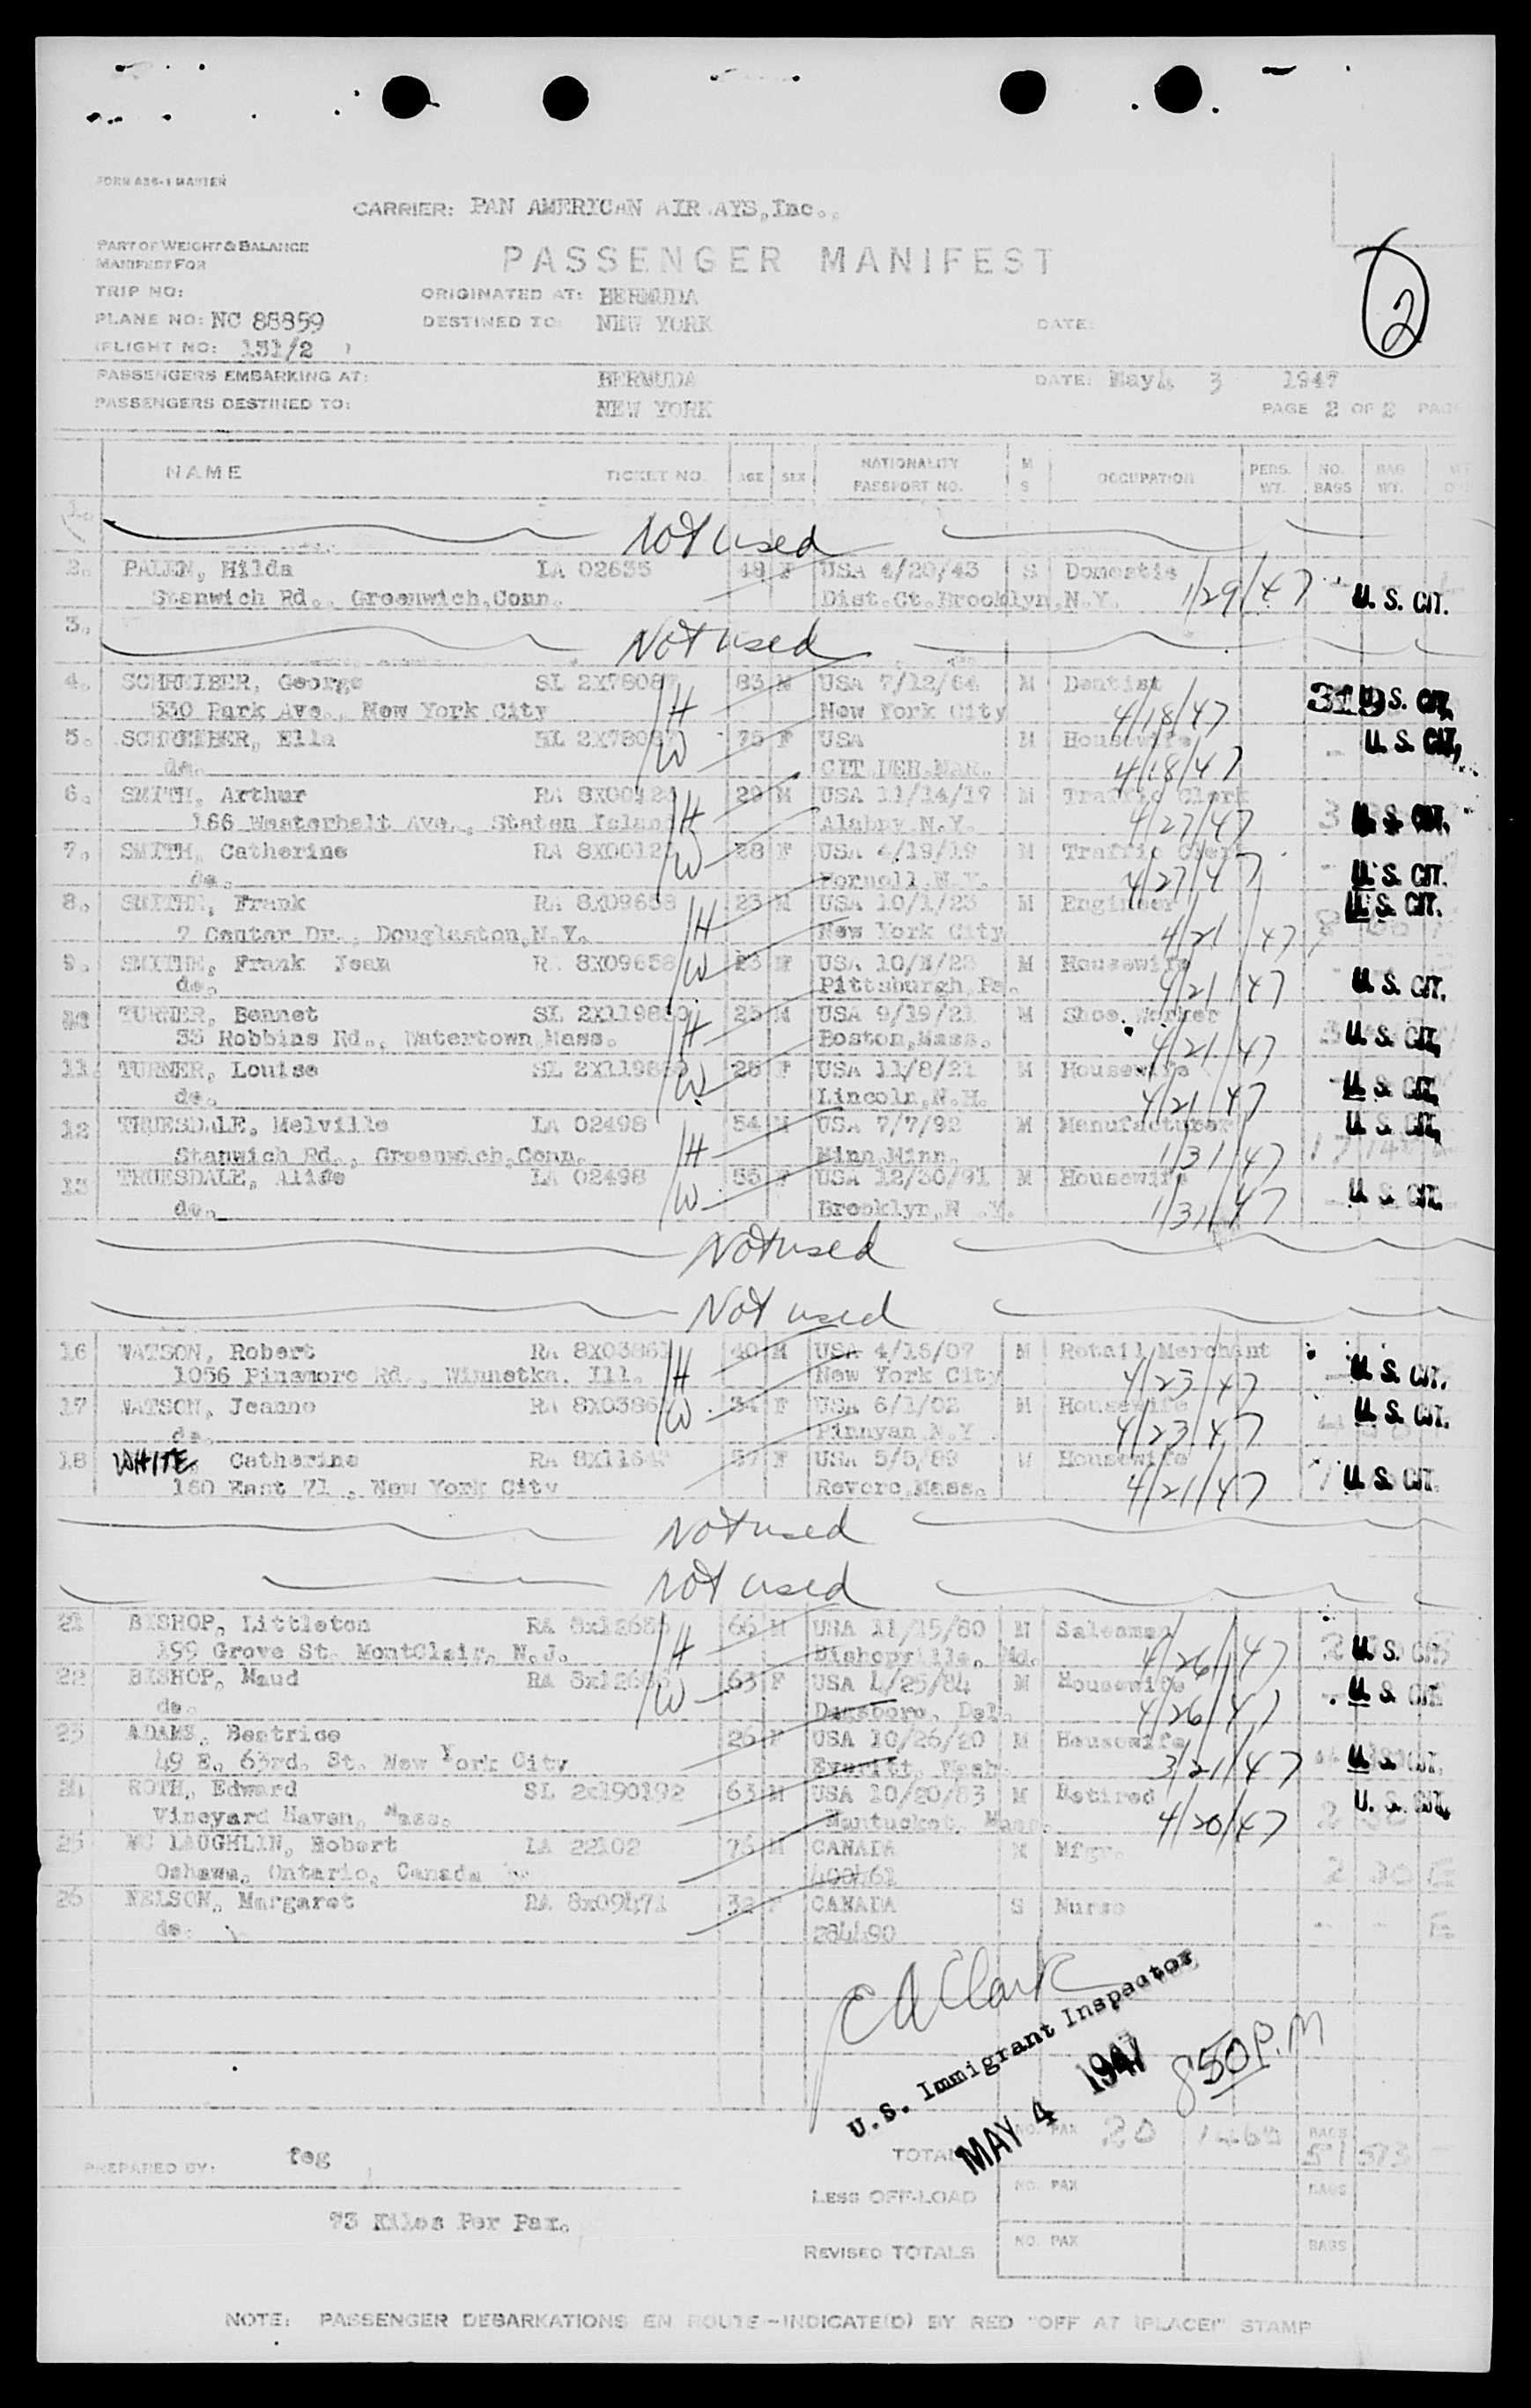 FORM A36-1 MASTER
CARRIER: PAN AMERICAN AIR AYS, Inc.,
PART OF WEIGHT & BALANCE
MANIFEST FOR
PASSENGER MANIFEST
TRIP NO:
ORIGINATED AT: BERMUDA
PLANE NO: NC 88859
DESTINED TO: NEW YORK
DATE:
2
(FLIGHT NO: 151/2 )
PASSENGERS EMBARKING AT: BERMUDA DATE: May 4 3 1947
PASSENGERS DESTINED TO: NEW YORK PAGE 2 OF 2
NAME TICKET NO. AGE SEX NATIONALITY PASSPORT NO. M S OCCUPATION PERS. WT. NO. BAGS BAG WT.
Not used
2. PALEN, Hilda LA 02635 48 F USA 4/20/43 S Domestic
Stanwich Rd., Greenwich, Conn. Dist. Ct. Brooklyn, N.Y. 1/29/47 U. S. CIT.
3. Not used
4. SCHREIBER, George SL 2X7808 83 M USA 7/12/64 M Dentist
530 Park Ave., New York City H New York City 4/18/47 U. S. CIT.
5. SCHREIBER, Ella SL 2X7808 75 F USA M Housewife U. S. CIT.
do. W CIT. 4/18/47
6. SMITH, Arthur RA 8X0012 29 M USA 11/14/17 M Traffic Clerk
166 Westerhelt Ave., Staten Island H N.Y. 4/27/47 3 U. S. CIT.
7. SMITH, Catherine RA 8X0012 28 F USA 4/19/19 M Traffic Clerk
do. W Hornell, N.Y. 4/27/47 U. S. CIT.
8. Frank RA 8X09658 23 M USA 10/1/23 M Engineer U. S. CIT.
7 Center Dr., Douglaston, N.Y. H New York City 4/21/47
9. Frank Jean RA 8X09658 23 USA M Housewife
do. W Pittsburgh, Pa. 4/21/47 U. S. CIT.
TURNER, Bennet SL 2X11980 25 M USA 9/19/21 M Shoe Worker
33 Robbins Rd., Watertown, Mass. H Boston, Mass. 4/21/47 U. S. CIT.
11 TURNER, Louise SL 2X1198 25 F USA 11/8/21 M Housewife
do. W Lincoln, N.H. 4/21/47 U. S. CIT.
12 TRUESDALE, Melville LA 02498 54 M USA 7/7/92 M Manufacturer U. S. CIT.
Stanwich Rd., Greenwich, Conn. H Minn, Minn. 1/31/47
13 TRUESDALE, Alice LA 02498 55 F USA 12/30/91 M Housewife
do. W Brooklyn, N.Y. 1/31/47 U. S. CIT.
Not used
Not used
16 WATSON, Robert RA 8X0386 40 M USA 4/15/07 M Retail Merchant
1056 Pinemore Rd., Winnetka. Ill. H New York City 4/23/47 U. S. CIT.
17 WATSON, Jeanne RA 8X0386 34 F USA 6/1/02 M Housewife
do. W N.Y. 4/23/47 U. S. CIT.
18 WHITE, Catherine RA 8X1164 57 F USA 5/5/89 Housewife
160 East 71, New York City Revere, Mass. 4/21/47 U. S. CIT.
Not used
Not used
21 BISHOP, Littleton RA 8x1268 66 M USA 11/15/80 M Salesman
199 Grove St. MontClair, N.J. H Bishopville, Md. 4/26/47 2 U. S. CIT.
22 BISHOP, Maud RA 8x1268 63 F USA 4/25/84 M Housewife
do. W Del. 4/26/47 U. S. CIT.
23 ADAMS, Beatrice 26 F USA 10/26/20 M Housewife
49 E. 63rd. St. New York City Everitt, Wash. 3/21/47 U. S. CIT.
24 ROTH, Edward SL 2x190192 63 M USA 10/20/83 M Retired
Vineyard Haven, Mass. Nantucket, Mass. 4/20/47 2 U. S. CIT.
25 MC LAUGHLIN, Robert LA 22102 76 M CANADA M Mfgr.
Oshawa, Ontario, Canada 2 30 E
26 NELSON, Margaret RA 8x09471 32 F CANADA S Nurse
do. - - E
E A Clark
U.S. Immigrant Inspector
MAY 4 1947
850 P.M
TOTAL NO. PAX 20 1460 BAGS 51 573
PREPARED BY: feg
LESS OFF-LOAD NO. PAX BAGS
73 Kilos Per Pax.
REVISED TOTALS NO. PAX BAGS
NOTE: PASSENGER DEBARKATIONS EN ROUTE—INDICATE(D) BY RED "OFF AT (PLACE)" STAMP